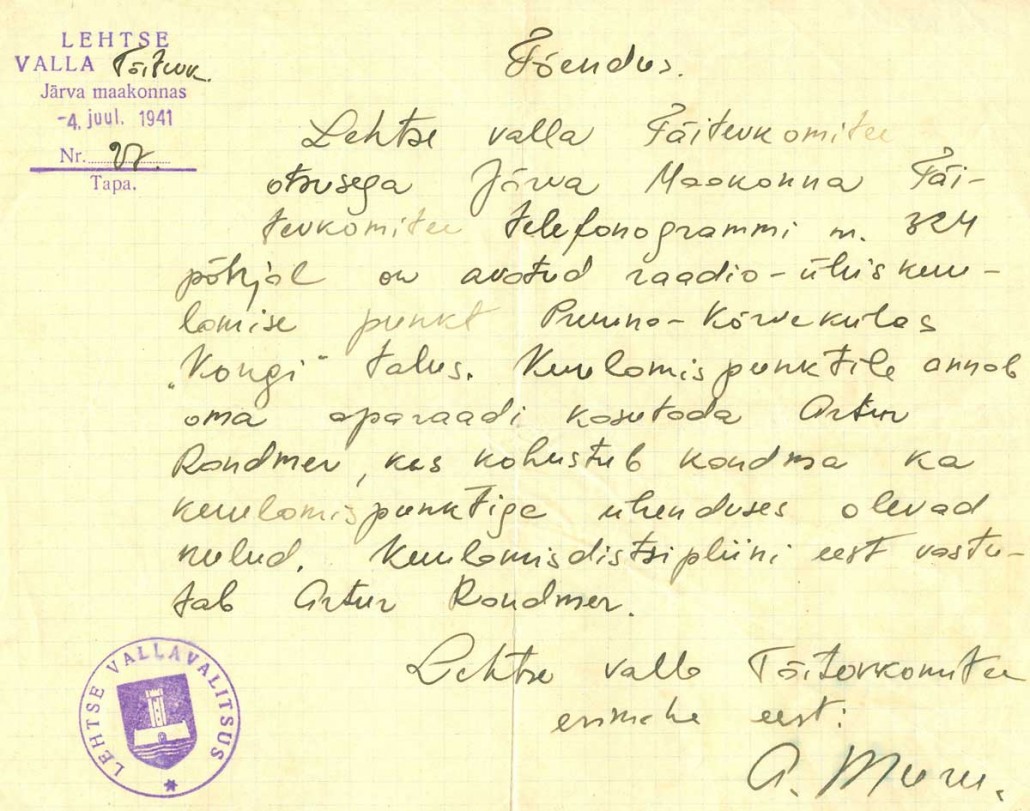 LEHTSE
VALLA Täitevk.
Järva maakonnas
-4. juul. 1941
Nr. 27.
Tapa.
Tõendus.
Lehtse valla Täitevkomitee
otsusega Järva Maakonna Täi-
tevkomitee telefonogrammi nr. 324
põhjal on avatud raadio-ühiskuu-
lamise punkt Pruuna-Kõrvekülas
"Kongi" talus. Kuulamispunktile annab
oma aparaadi kasutada Artur
Randmer, kes kohustub kandma ka
kuulamispunktiga ühenduses olevad
kulud. Kuulamisdistsipliini eest vastu-
tab Artur Randmer.
Lehtse valla Täitevkomitee
esimehe eest:
A. Muru.
LEHTSE VALLAVALITSUS